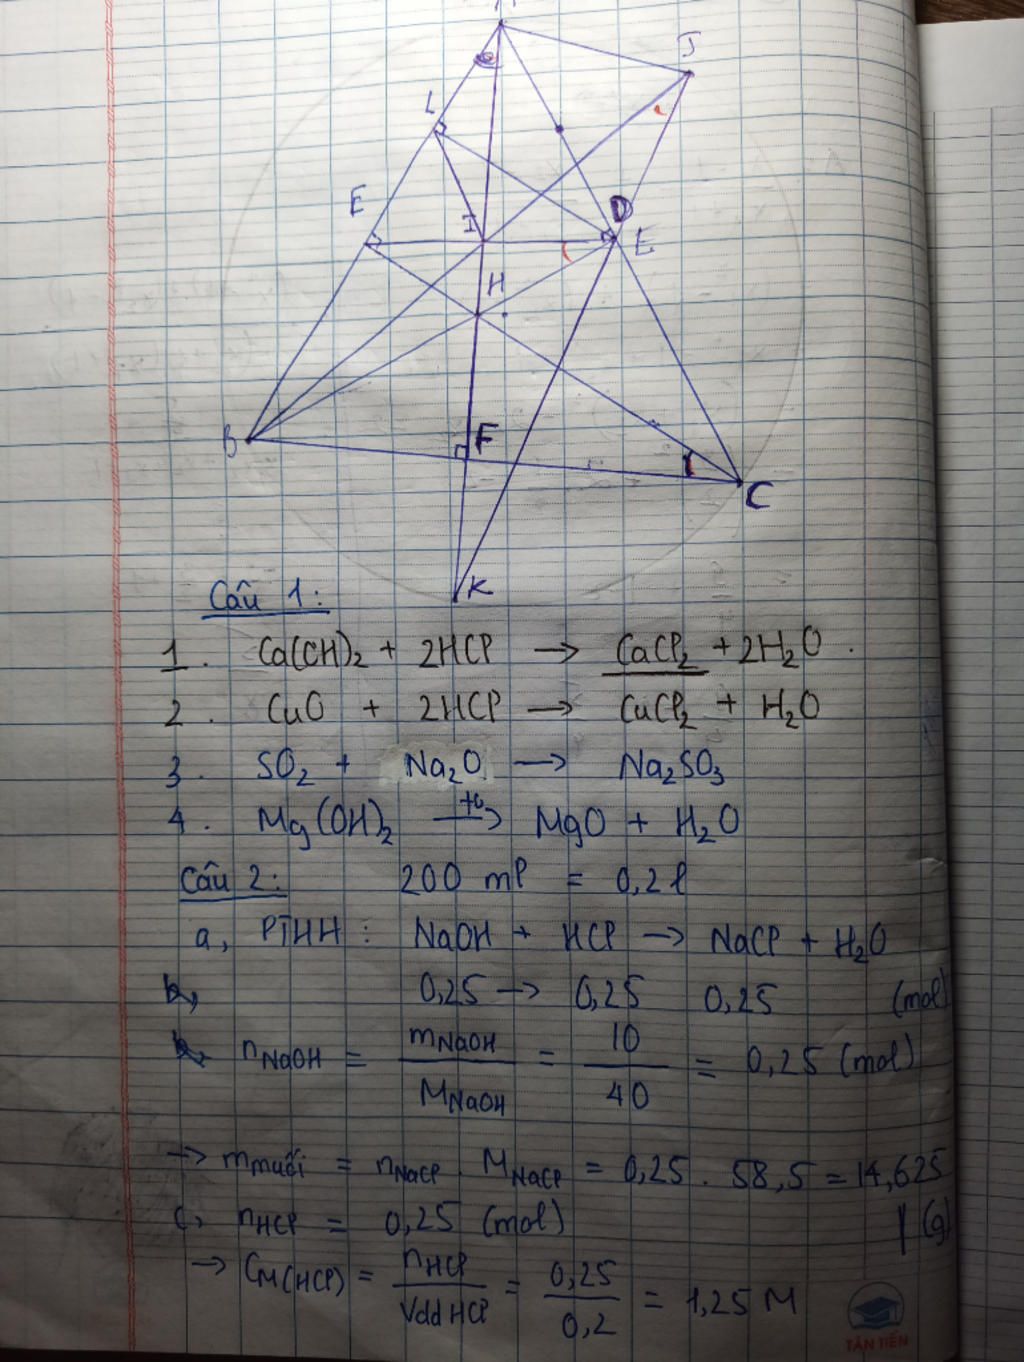 J
L
E
D
I
E
H
B
F
C
K
Câu 1:
1. Ca(OH)₂ + 2HCl → CaCl₂ + 2H₂O.
2. CuO + 2HCl → CuCl₂ + H₂O
3. SO₂ + Na₂O → Na₂SO₃
4. Mg(OH)₂ →(t°) MgO + H₂O
Câu 2: 200 ml = 0,2 l
a, PTHH: NaOH + HCl → NaCl + H₂O
b, 0,25 → 0,25 0,25 (mol)
b. nNaOH = mNaOH / MNaOH = 10 / 40 = 0,25 (mol)
→ mmuối = nNaCl . MNaCl = 0,25 . 58,5 = 14,625 (g)
c, nHCl = 0,25 (mol)
→ CM(HCl) = nHCl / Vdd HCl = 0,25 / 0,2 = 1,25 M
TÂN TIẾN